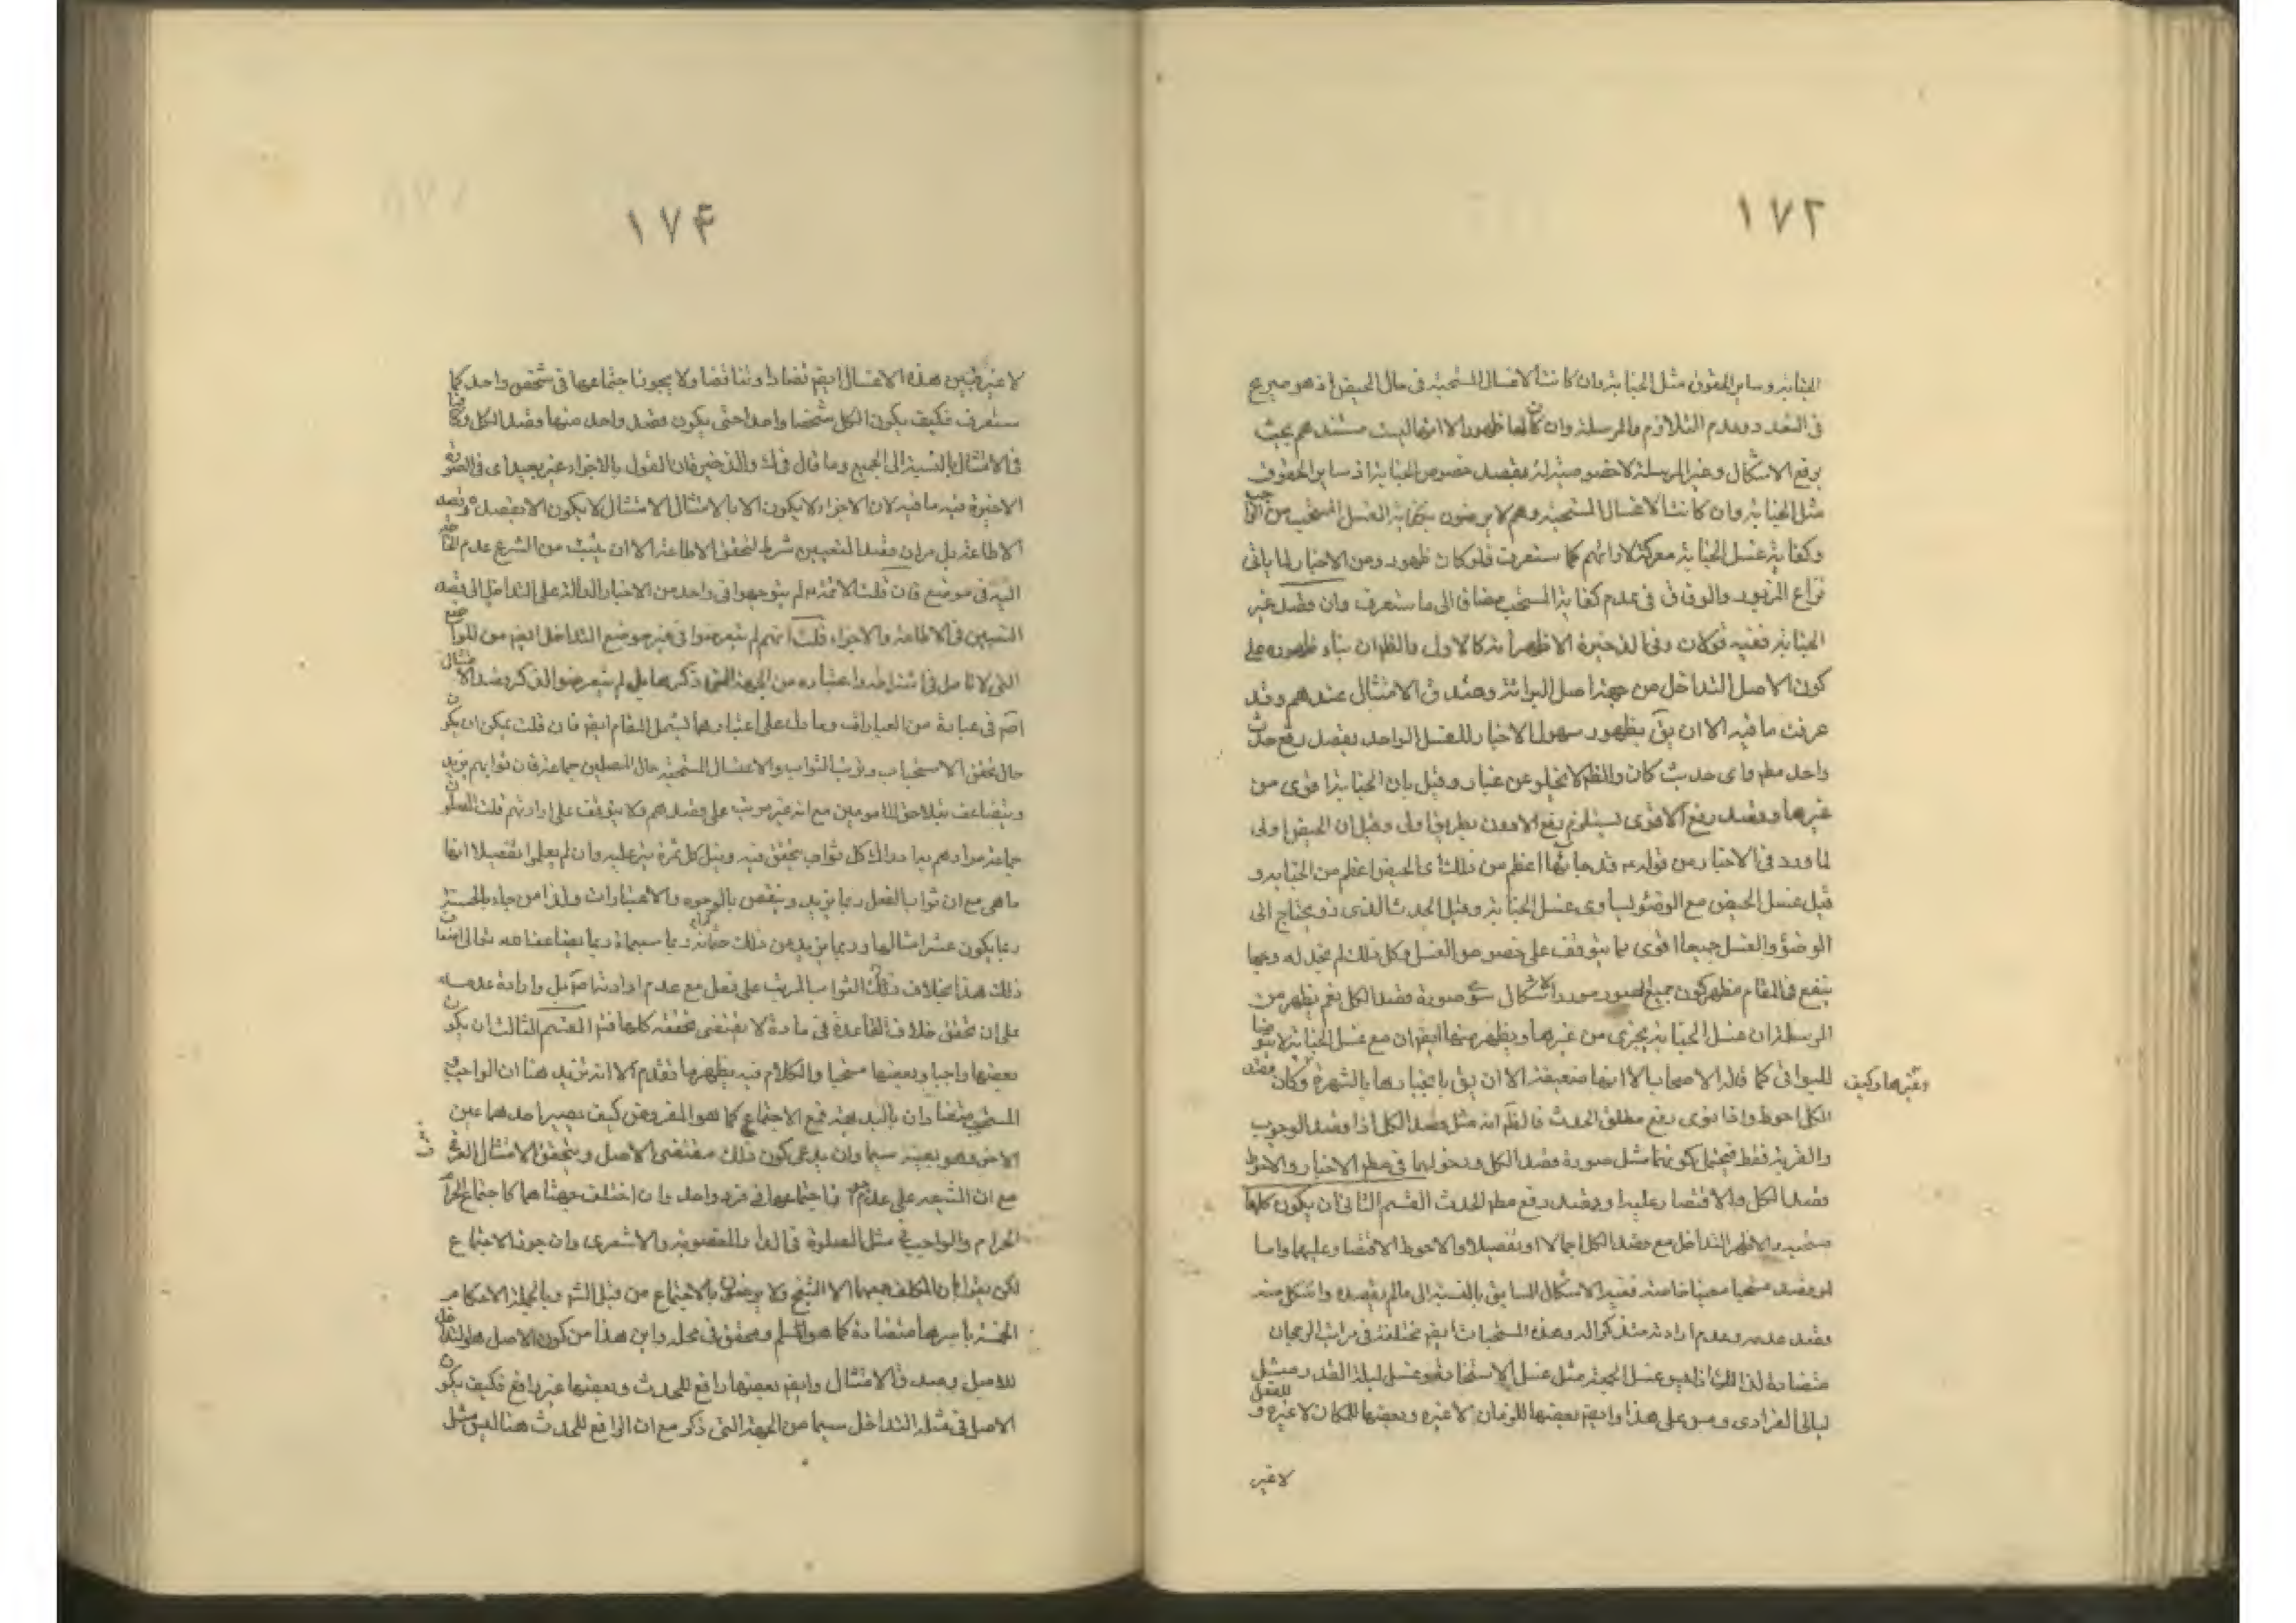 ١٧٢
الجنابة وساير الحقوق مثل الجنابة وان كانت الاغسال المستحبة فى حال الحيض اذ هو صريح
فى التعدد وعدم التلازم والمرسلة وان كان لها ظهور الا انها ليست مستندهم بحيث
يرفع الاشكال وغير المرسلة لا خصوصية له بقصد خصوص الجنابة اذ ساير الحقوق
مثل الجنابة وان كانت الاغسال المستحبة وهم لا يرضون بكفاية الغسل المستحب من الواجب
وكفاية غسل الجنابة معركة لارائهم كما ستعرف فلو كان ظهور ومن الاخبار لما ياتى
نزاع المزبور والوفاق فى عدم كفاية المستحب مضافا الى ما ستعرف وان قصد غير
الجنابة ففيه قولان وفى الذخيرة الاظهر انه كالاول والظ ان بناء ظهوره على
كون الاصل التداخل من جهة اصل البرائة وصدق الامتثال عندهم وقد
عرفت ما فيه الا ان يق بظهور شمول الاخبار للغسل الواحد بقصد رفع حدث
واحد مطم واى حديث كان والظ لا يخلو عن غبار وقيل بان الجنابة اقوى من
غيرها وقصد رفع الاقوى يستلزم رفع الادون بطريق اولى وقيل ان الحيض اولى
لما ورد فى الاخبار من قوله قد جائها اعظم من ذلك اى الحيض اعظم من الجنابة و
قيل غسل الحيض مع الوضوء يساوى غسل الجنابة وقيل الحدث الذى يحتاج الى
الوضؤ والغسل جميعا اقوى مما يتوقف على خصوص الغسل وكل ذلك لم نجد له وجها
ينفع فى المقام فظهر كون جميع الصور مورد الاشكال سوى صورة قصد الكل نعم يظهر من
المرسلة ان غسل الجنابة يجزى من غيرها ويظهر منها ايضا ان مع غسل الجنابة لا يتوضا
للبواقى كما قاله الاصحاب الا انها ضعيفة الا ان يق بانجبارها بالشهرة وكان قصد
وغيرها وكيف
الكل احوط واذا نوى رفع مطلق الحدث فالظ انه مثل قصد الكل اذا قصد الوجوب
والقربة فقط فيحتمل كونهما مثل صورة قصد الكل ودخولهما فى مطم الاخبار والاحوط
قصد الكل والاقتصار عليه او بقصد رفع مطم الحدث القسم الثانى ان يكون كلها
مستحبه والاظهر التداخل مع قصد الكل اجمالا او تفصيلا والاحوط الاقتصار عليها واما
لو قصد مستحبا معينا خاصة ففيه الاشكال السابق بالنسبة الى ما لم يقصده واشكل منه
قصد عدمه وعدم ارادته وهذه المستحبات ايضا مختلفة فى مراتب الرجحان
متضادة لذلك اذ ليس غسل الجمعة مثل غسل الاستحاضة وغسل ليلة القدر مثل
ليالى الفرادى وقس على هذا وايضا بعضها للزمان لا غيره وبعضها للمكان لا غيره و للفعل
لا غير
١٧۴
لا غيره فبين هذه الاغسال ايضا تضاد وتناقض ولا يجوز اجتماعها فى شخص واحد كما
ستعرف فكيف يكون الكل شخصا واحدا حتى يكون قصد واحد منها قصد الكل
فى الامتثال بالنسبة الى الجميع وما قال فى والذخيرة ان القول بالاجزاء غير بعيد اى فى الصورة
الاخيرة فيه ما فيه لان الاجزاء لا يكون الا بالامتثال الامتثال لا يكون الا بقصد
الاطاعة بل مر ان قصد التعيين شرط لتحقق الاطاعة الا ان يثبت من الشرع عدم
اليه فى موضع فان قلت الائمة لم يتوجهوا فى واحد من الاخبار الدالة على التداخل الى قصد
التعيين فى الاطاعة والاجزاء قلت انهم لم يتعرضوا فى غير موضع التداخل ايضا من المواضع
التى لا تامل فى اشتراطه واعتباره من الجهة التى ذكرها بل لم يتعرضوا لذكر قصد الامتثال
اصم فى عبادة من العبادات وما دل على اعتبارها يشمل المقام ايضا فان قلت يمكن ان يكون
حال تحقق الاستحباب وترتب الثواب والاغسال المستحبة حال المصلين جماعة فان ثوابهم يزيد
ويتضاعف بتلاحق المامومين مع انه غير مرتب على قصدهم ولا يتوقف على ارادتهم قلت المصلون
جماعة مرادهم ادراك كل ثواب يتحقق فيه ونيل كل ثمرة يترتب عليه وان لم يعلموا تفصيلا انها
ما هى مع ان ثواب الفعل ربما يزيد وينقص بالوجوه والاعتبارات ولذا من جاء بالحسنة
ربما يكون عشر امثالها وربما يزيد من ذلك ربما سبعمأة ربما يضاعف الله تعالى اضعاف
ذلك هذا بخلاف ذلك الثواب المرتب على فعل مع عدم ارادته اصم بل وارادة عدمه
على ان تحقق خلاف القاعدة فى مادة لا يقتضى تحققه كلها القسم الثالث ان يكون
بعضها واجبا وبعضها مستحبا والكلام فيه يظهر مما تقدم الا انه نزيد هنا ان الواجب و
المستحب متضادان بالبديهة فمع الاجتماع كما هو المفروض كيف يصير احدهما عين
الاخر وهو بعينه سيما وان يدعى كون ذلك مقتضى الاصل ويتحقق الامتثال العرفى
مع ان الشيعه على عدم جواز اجتماعها فى فرد واحد وان اختلف جهتاهما كاجتماع
الحرام والواجب فى مثل الصلوة فى الدار المغصوبة والاشعرى وان جوز الاجتماع
لكن يقول ان المكلف جمعها لا الشارع ولا يرضون بالاجتماع من قبل الشرع وبالجملة الاحكام
الخمسة باسرها متضادة كما هو المسلم ومحقق فى محله واين هذا من كون الاصل هو التداخل
للاصل وصدق الامتثال وايضا بعضها رافع للحدث وبعضها غير رافع فكيف يكون
الاصل فى مثله التداخل سيما من الجهة التى ذكر مع ان الرافع للحدث هنا ليس مثل